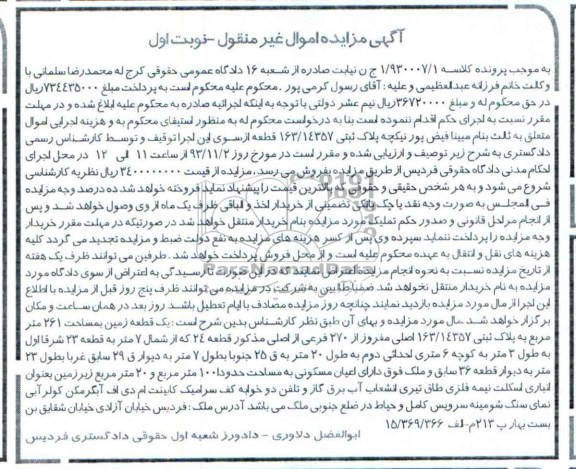 آگهی مزایده اموال غیر منقول -نوبت اول
به موجب پرونده کلاسه ۱/۹۳۰۰۰۷/۱ ج ن نیابت صادره از شعبه ۱۶ دادگاه عمومی حقوقی کرج له محمدرضا سلمانی با
وکلت خانم فرزانه عبدالعظیمی و علیه : آقای رسول کرمی پور . محکوم علیه محکوم است به پرداخت مبلغ ۷۳۴۴۳۵۰۰۰ریال
در حق محکوم له و مبلغ ۳۶۷۲۰۰۰۰ریال نیم عشر دولتی با توجه به اینکه اجرائیه صادره به محکوم علیه ابلاغ شده و در مهلت
مقرر نسبت به اجرای حکم اقدام ننموده است بنا به درخواست محکوم له به منظور استیفای محکوم به و هزینه اجرایی اموال
متعلق به ثالث بنام مبینا فیض پور نیکچه پلاک ثبتی ۱۶۳/۱۴۳۵۷ قطعه ازسوی این اجرا توقیف و توسط کارشناس رسمی
دادگستری به شرح زیر توصیف و ارزیابی شده و مقرر است در مورخ روز ۹۳/۱۱/۲ از ساعت ۱۱ الی ۱۲ در محل اجرای
احکام مدنی دادگاه حقوقی فردیس از طریق مزایده بفروش می رسد. مزایده از قیمت ۳۴۰۰۰۰۰۰۰۰ ریال نظریه کارشناسی
شروع می شود و به هر شخص حقیقی و حقوقی که بالاترین قیمت را پیشنهاد نماید فروخته خواهد شد ده درصد وجه مزایده
فی المجلس به صورت وجه نقد یا چک بانکی تضمینی از خریدار اخذ و الباقی ظرف یک ماه از وی وصول خواهد شد و پس
از انجام مراحل قانونی و صدور حکم تملیک مورد مزایده بنام خریدار منتقل خواهد شد در صورتیکه در مهلت مقرر خریدار
وجه مزایده را پرداخت ننماید سپرده وی پس از کسر هزینه های مزایده به نفع دولت ضبط و مزایده تجدید می گردد کلیه
هزینه های نقل و انتقال به عهده محکوم علیه است و از محل فروش پرداخت خواهد شد . طرفین می توانند ظرف یک هفته
از تاریخ مزایده نسبت به نحوه انجام مزایده اعتراض نمایند در این صورت تا رسیدگی به اعتراض از سوی دادگاه مورد
مزایده به نام خریدار منتقل نخواهد شد ضمنا طالبین به شرکت در مزایده می توانند ظرف پنج روز قبل از مزایده با اطلاع
این اجرا از مال مورد مزایده بازدید نمایند چنانچه روز مزایده مصادف با ایام تعطیل باشد روز بعد در همان ساعت و مکان
برگزار خواهد شد .مال مورد مزایده و بهای آن طبق نظر کارشناس بدین شرح است : یک قطعه زمین بمساحت ۲۶۱ متر
مربع به پلاک ثبتی ۱۶۳/۱۴۳۵۷ اصلی مفروز از ۲۷۰ فرعی از اصلی مذکور قطعه ۲۴ که از شمال ۷ متر به قطعه ۲۳ شرقا اول
به طول ۳ متر به کوچه ۶ متری احداثی دوم به طول ۲۰ متر به ق ۲۵ جنوبا بطول ۷ متر به دیوار ق ۲۹ سابق غربا بطول ۲۳
متر به دیوار قطعه ۳۶ سابق و ملک فوق دارای اعیان مسکونی به مساحت حدودا ۱۰۰ متر مربع و ۲۰ متر مربع زیرزمین بعنوان
انباری اسکلت نیمه فلزی طاق تیری انشعاب آب برق گاز و تلفن دو خوابه کف سرامیک کابینت ام دی اف آبگرمکن کولر آبی
نمای سنگ شومینه سرویس کامل و حیاط در ضلع جنوبی ملک می باشد آدرس ملک : فردیس خیابان آزادی خیابان شقایق بن
بست بهار پ ۲۱۳م-الف ۱۵/۳۶۹/۳۶۶
ابوالفضل دلاوری - دادورز شعبه اول حقوقی دادگستری فردیس